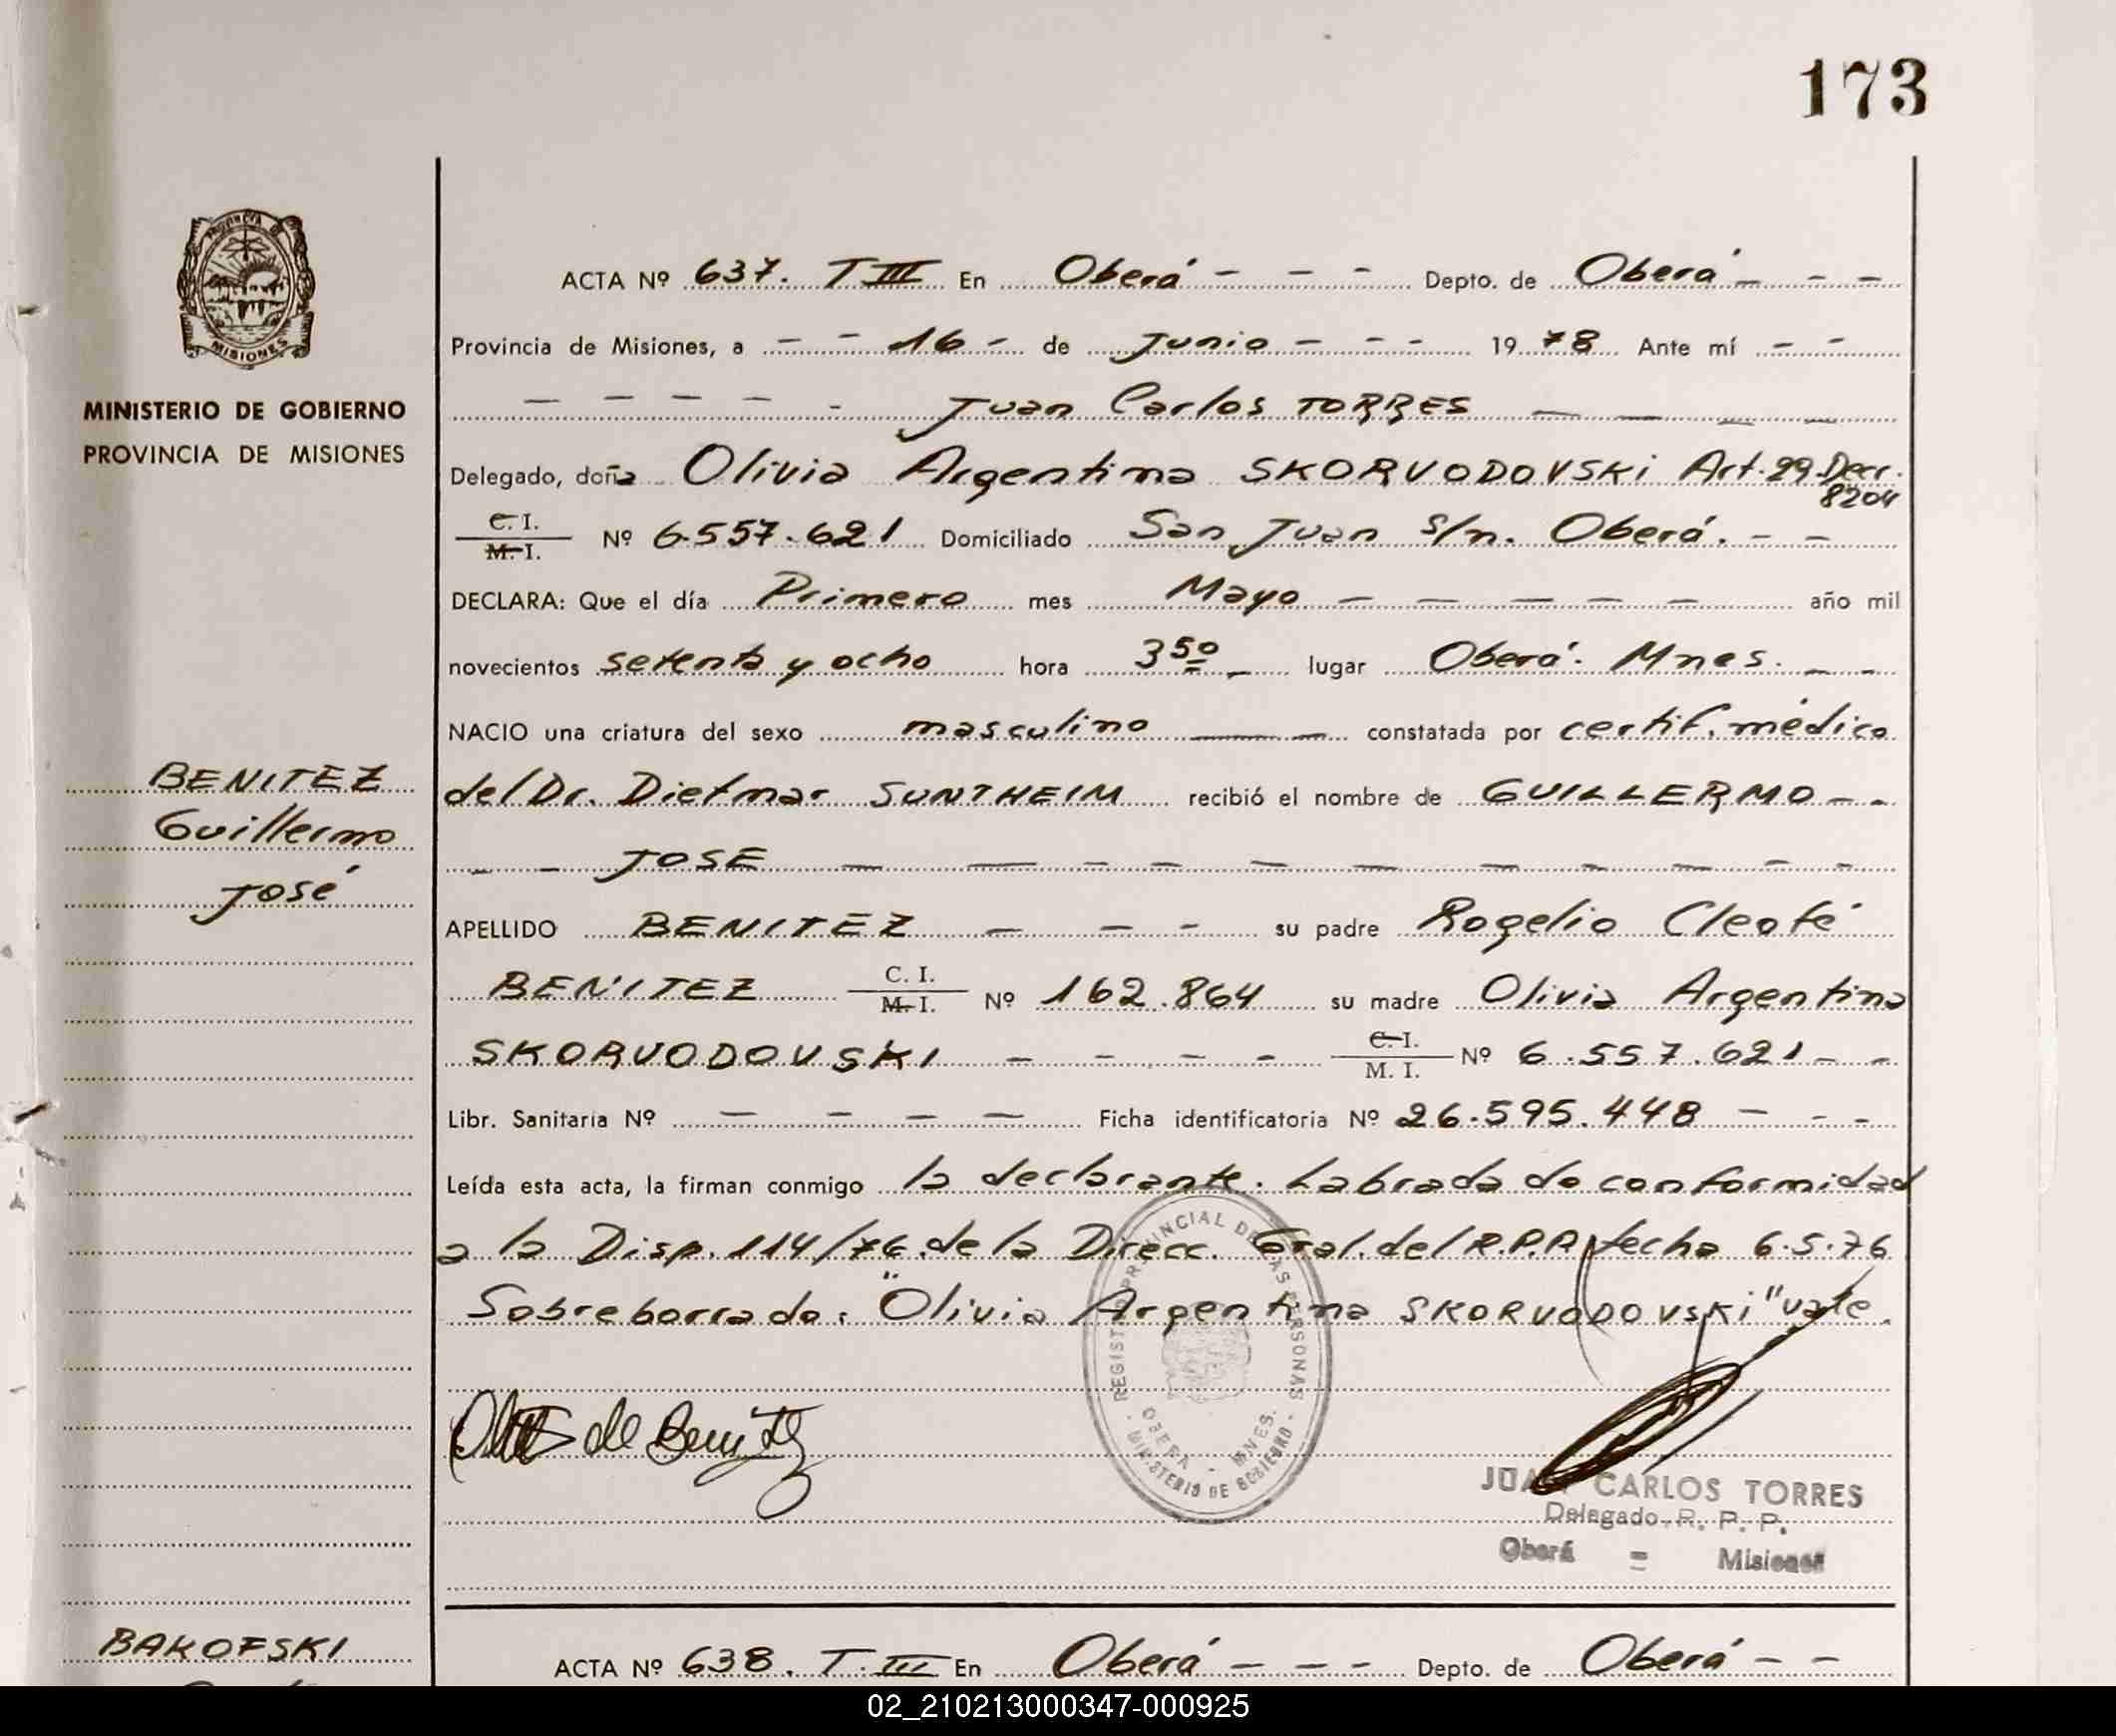 173
PROVINCIA DE
MISIONES
MINISTERIO DE GOBIERNO
PROVINCIA DE MISIONES
BENITEZ
Guillermo
José
ACTA Nº 637. T III En Oberá - - - Depto. de Oberá - - -
Provincia de Misiones, a - - 16 - de Junio - - - 1978 Ante mí - -
- - - - - Juan Carlos TORRES - - - -
Delegado, doña Olivia Argentina SKORVODOVSKI Art. 29 Decr. 8204
C. I. / M. I. Nº 6.557.621 Domiciliado San Juan s/n. Oberá. - -
DECLARA: Que el día Primero mes Mayo - - - - - año mil
novecientos setenta y ocho hora 3 50 - lugar Oberá. Mnes. - -
NACIO una criatura del sexo masculino - - constatada por certif. médico
del Dr. Dietmar SUNTHEIM recibió el nombre de GUILLERMO - -
- - JOSÉ - - - - - - - - - - -
APELLIDO BENITEZ - - - su padre Rogelio Cleofé
BENITEZ C. I. / M. I. Nº 162.864 su madre Olivia Argentina
SKORVODOVSKI - - - - C. I. / M. I. Nº 6.557.621 - -
Libr. Sanitaria Nº - - - - Ficha identificatoria Nº 26.595.448 - - -
Leída esta acta, la firman conmigo la declarante. Labrada de conformidad
a la Disp. 114/76 de la Direcc. Gral. del R.P.P. fecha 6.5.76
Sobreborrado: "Olivia Argentina SKORVODOVSKI" vale.
REGISTRO PROVINCIAL DE LAS PERSONAS
OBERA - MNES.
MINISTERIO DE GOBIERNO
de Benitez
JUAN CARLOS TORRES
Delegado R. P. P.
Oberá = Misiones
BAKOFSKI
ACTA Nº 638. T. III En Oberá - - - Depto. de Oberá - -
02_210213000347-000925